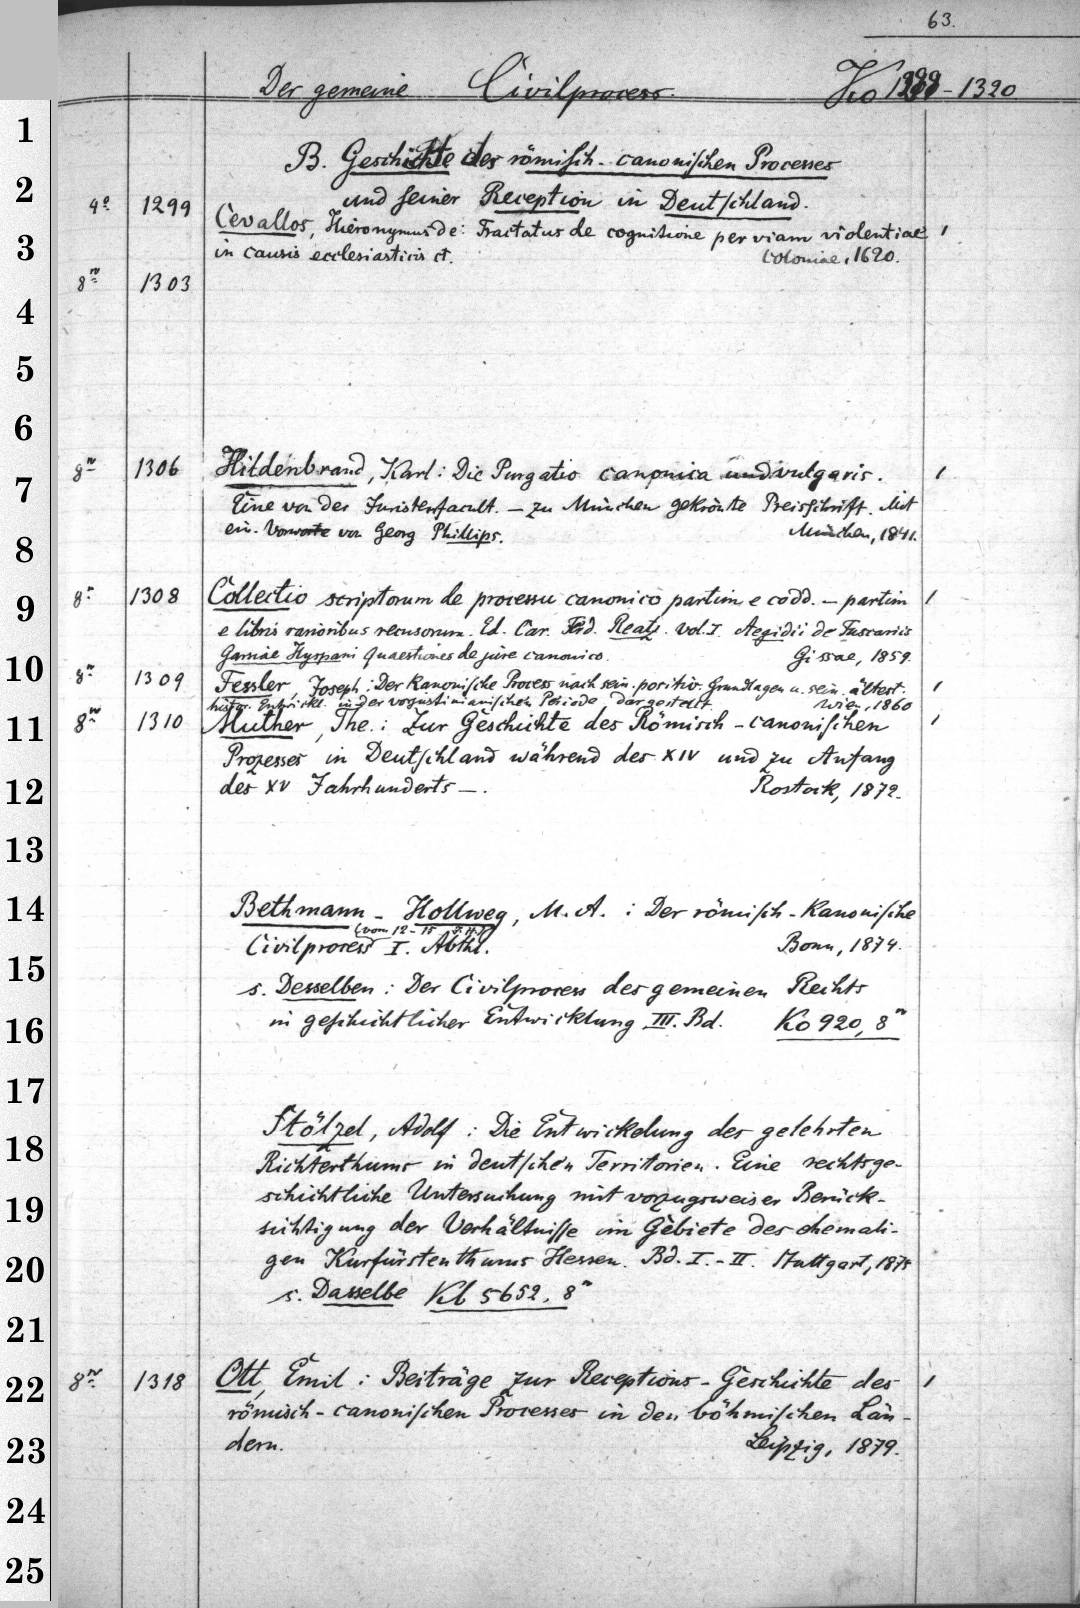 63.
Der gemeine Civilprocess. Ko 1299 - 1320
1
B. Geschichte des römisch-canonischen Processes
2
und seiner Reception in Deutschland.
4º 1299
Cevallos, Hieronymus de: Tractatus de cognitione per viam violentiae 1
3
in causis ecclesiasticis ct. Coloniae, 1620.
8º 1303
4
5
6
8º 1306 Hildenbrand, Karl: Die Purgatio canonica und vulgaris. 1
7
Eine von der Juristenfacult. — zu München gekrönte Preisschrift. Mit
ein. Vorworte von Georg Phillips. München, 1841.
8
8º 1308 Collectio scriptorum de processu canonico partim e codd. — partim 1
9
e libris rarioribus recusorum. Ed. Car. Frid. Reatz. Vol. I Aegidii de Fuscariis
Garsiae Hyspani Quaestiones de jure canonico. Gissae, 1859.
10
8º 1309 Fessler, Joseph: Der kanonische Process nach sein. positiv. Grundlagen u. sein. ältest. 1
histor. Entwickl. in der vorjustinianischen Periode, dargestellt. Wien, 1860
8º 1310 Muther, The.: Zur Geschichte des Römisch-canonischen 1
11
Prozesses in Deutschland während des XIV und zu Anfang
12
des XV Jahrhunderts —. Rostock, 1872.
13
14
Bethmann-Hollweg, M. A.: Der römisch-kanonische
(vom 12-15 J.H.)
Civilprocess I. Abthl. Bonn, 1874.
15
s. Desselben: Der Civilprocess des gemeinen Rechts
16
in geschichtlicher Entwicklung III. Bd. Ko 920, 8º
17
18
Stölzel, Adolf: Die Entwickelung des gelehrten
Richterthums in deutschen Territorien. Eine rechtsge-
19
schichtliche Untersuchung mit vorzugsweiser Berück-
sichtigung der Verhältnisse im Gebiete des ehemali-
20
gen Kurfürstenthums Hessen. Bd. I.-II. Stuttgart, 1872
s. Dasselbe Kb 5652, 8º
21
8º 1318 Ott, Emil: Beiträge zur Receptions-Geschichte des 1
22
römisch-canonischen Processes in den böhmischen Län-
23
dern. Leipzig, 1879.
24
25